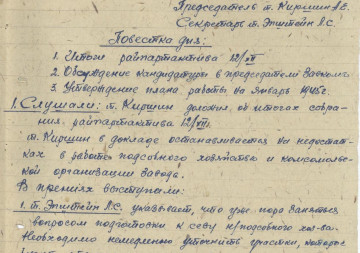 Председатель т. Киршин А.В.
Секретарь т. Эпштейн Л.С.
Повестка дня:
1. Итоги райпартактива 12/VII
2. Обсуждение кандидатур в председатели Завкома.
3. Утверждение плана работы на январь 1945 г.
1. Слушали: т. Киршин доложил об итогах собра-
ния райпартактива 12/VII.
т. Киршин в докладе останавливается на недостат-
ках в работе подсобного хозяйства и комсомоль-
ской организации завода.
В прениях выступали:
1. т. Эпштейн Л.С. указывает, что уже пора заняться
вопросом подготовки к севу п/подсобного хоз-ва.
Необходимо немедленно уточнить участки, которые